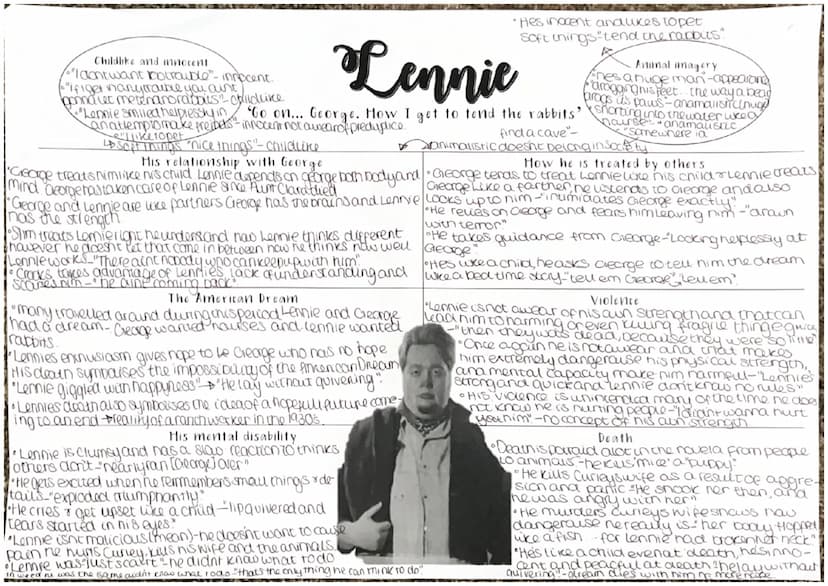 •Hes inocent and likes to pet
soft things "tend the rabbits"
Childlike and innocent
•"I dont want no trouble" - innocent
Lennie
Animal imagery
•"he's a huge man" - appearance
'Go on... George. How I get to tend the rabbits'
•"I like to pet
soft things" "nice things" - childlike
find a cave" -
animalistic doesnt belong in society
"somewhere id
His relationship with George
•George treats him like his child Lennie depends on george both body and
mind George has taken care of Lennie since Aunt Clara died
•George and Lennie are like partners George has the brains and Lennie
has the strength
•Slim treats Lennie right he understand how Lennie thinks different
however he doesnt let that come in between how he thinks how well
Lennie works - "There aint nobody who can keep up with him"
•Crooks takes advantage of Lennies lack of understanding and
scares him - "he aint coming back"
How he is treated by others
•George tends to treat Lennie like his child & Lennie treats
George like a partner, he listends to George and also
looks up to him - "intimidates George exactly"
•He relies on George and fears him leaving him - "drawn
with terror"
•He takes guidance from George - "Looking helplessly at
George"
•Hes like a child, he asks George to tell him the dream
like a bed time story - "tell em George", "tell em"
The American Dream
•many travelled around during this period Lennie and George
had a dream - George wanted houses and Lennie wanted
rabbits.
•Lennies enthusiasm gives hope to George who has no hope
His death symbolises the impossibility of the American Dream
"Lennie giggled with happyness" → "He lay without quivering"
•Lennies death also symbolises the idea of a hopefull future com-
ing to an end → reality of a ranch worker in the 1930s.
Violence
•Lennie is not awear of his own strength and that can
lead him to harming or even killing fragile things quick
- "then they was dead, because they were so little"
•Once again he is not awear and that makes
him extremely dangerause his physical strength,
and mental capacity make him harmful - "Lennie's
strong and quick and lennie dont know no rules"
•His violence is unintended many of the time he does
not know he is hurting people - "I didnt wanna hurt
him" - no concept of his own strength
His mental disability
•Lennie is clumsy and has a slow reaction to thinks
others don't - "nearly ran [George] over"
•He gets excited when he remembers small things & de-
tails - "exploded triumphantly"
•He cries & get upset like a child - "lip quivered and
tears started in his eyes"
•Lennie isnt malicious (mean) - he doesnt want to cause
pain he hurts Curley, kills his wife and the animals.
•Lennie was just scairt - he didnt know what to do
Death
•Death is portraid alot in the novela from people
to animals - he kills 'mice' a "puppy"
•He kills Curleys wife as a result of aggre-
sion and panic "He shook her then, and
he was angry with her"
•He murders Curleys wife shows how
dangerause he really is - "her body flopped
like a fish - for Lennie had broken her neck"
•He's like a child even at death, he's inno-
cent and peaceful at death "he lay without
quivering" - dream dies with